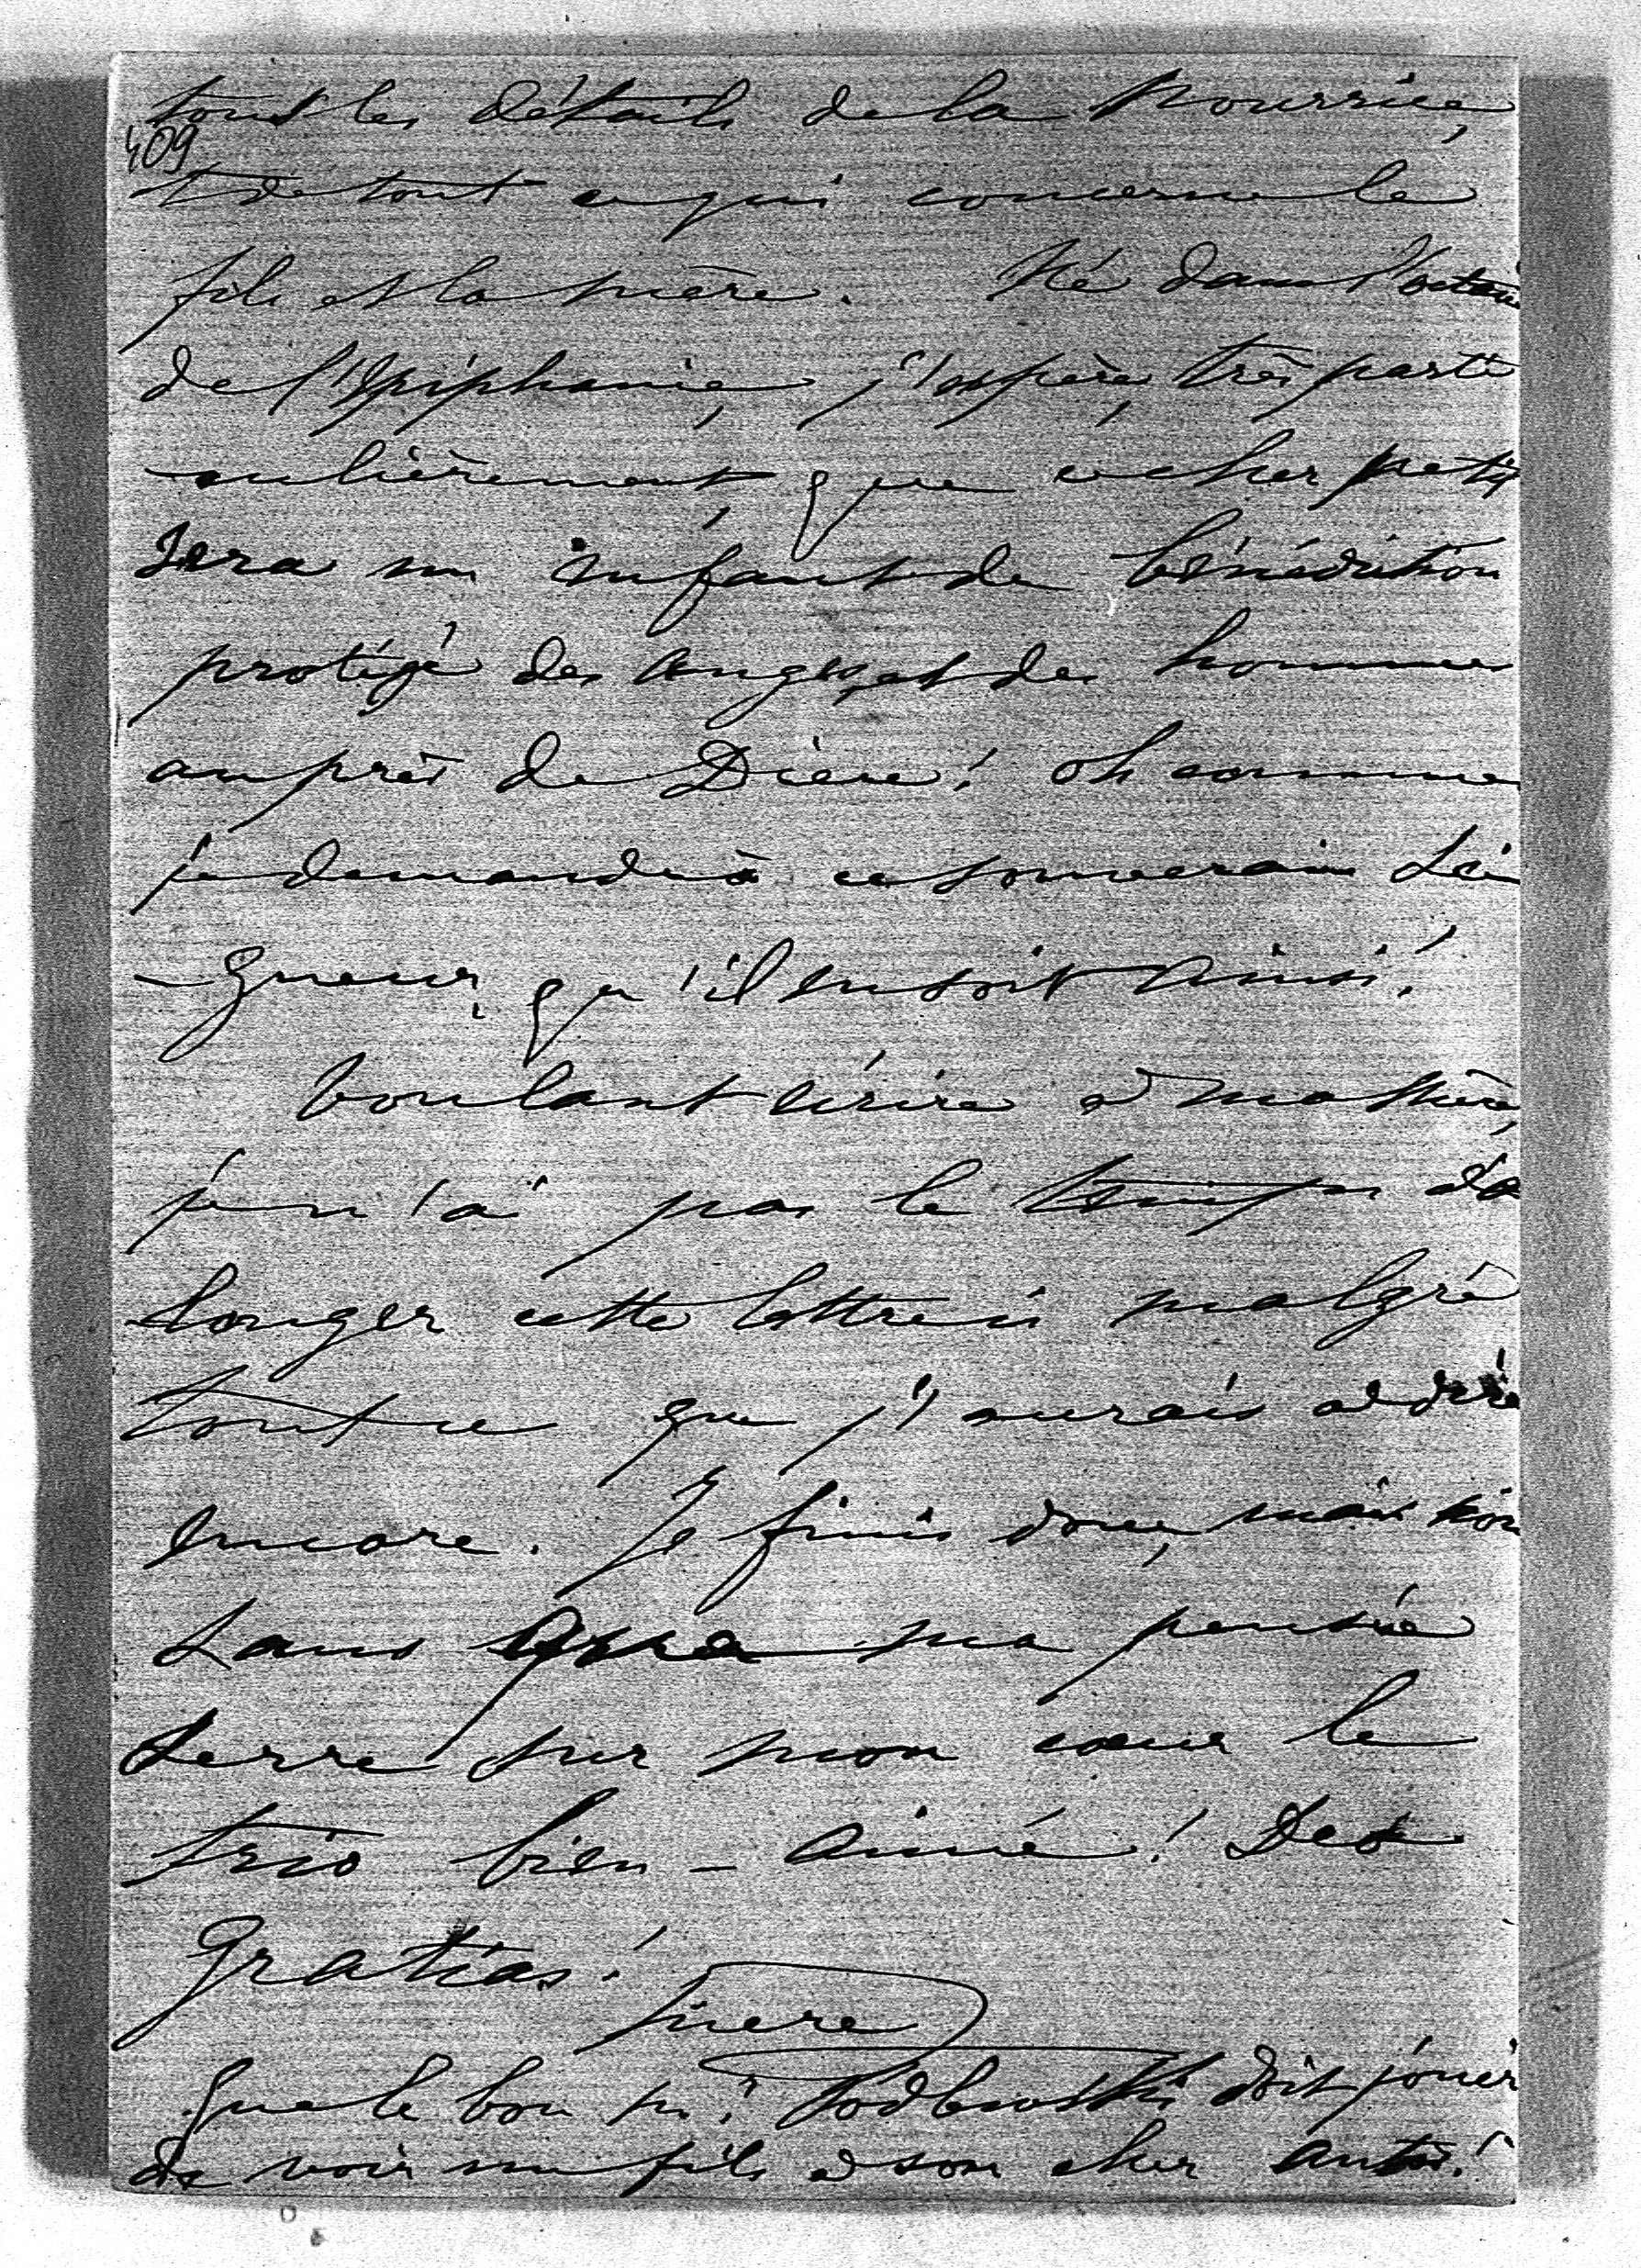 tous les détails de la Nourrice,
409
et de tout ce qui concerne le
fils et la mère. Né dans l'octave
de l'Epiphanie, j'espère, très parti
-culièrement, que ce cher petit
sera un enfant de bénédiction
protégé des anges, et des hommes
auprès de Dieu! oh comme
je demande à ce souverain Sei
-gneur, qu'il en soit ainsi!
Voulant écrire à ma mère,
je n'ai pas le temps d'a
longer cette lettre ci malgré
tout ce que j'aurais à dire
encore. Je finis donc, mais non
sans que ma pensée
serre sur mon cœur le
trio bien-aimé! Deo
Gratias!
mère
Que le bon M. doit jouir
de voir un fils à son cher